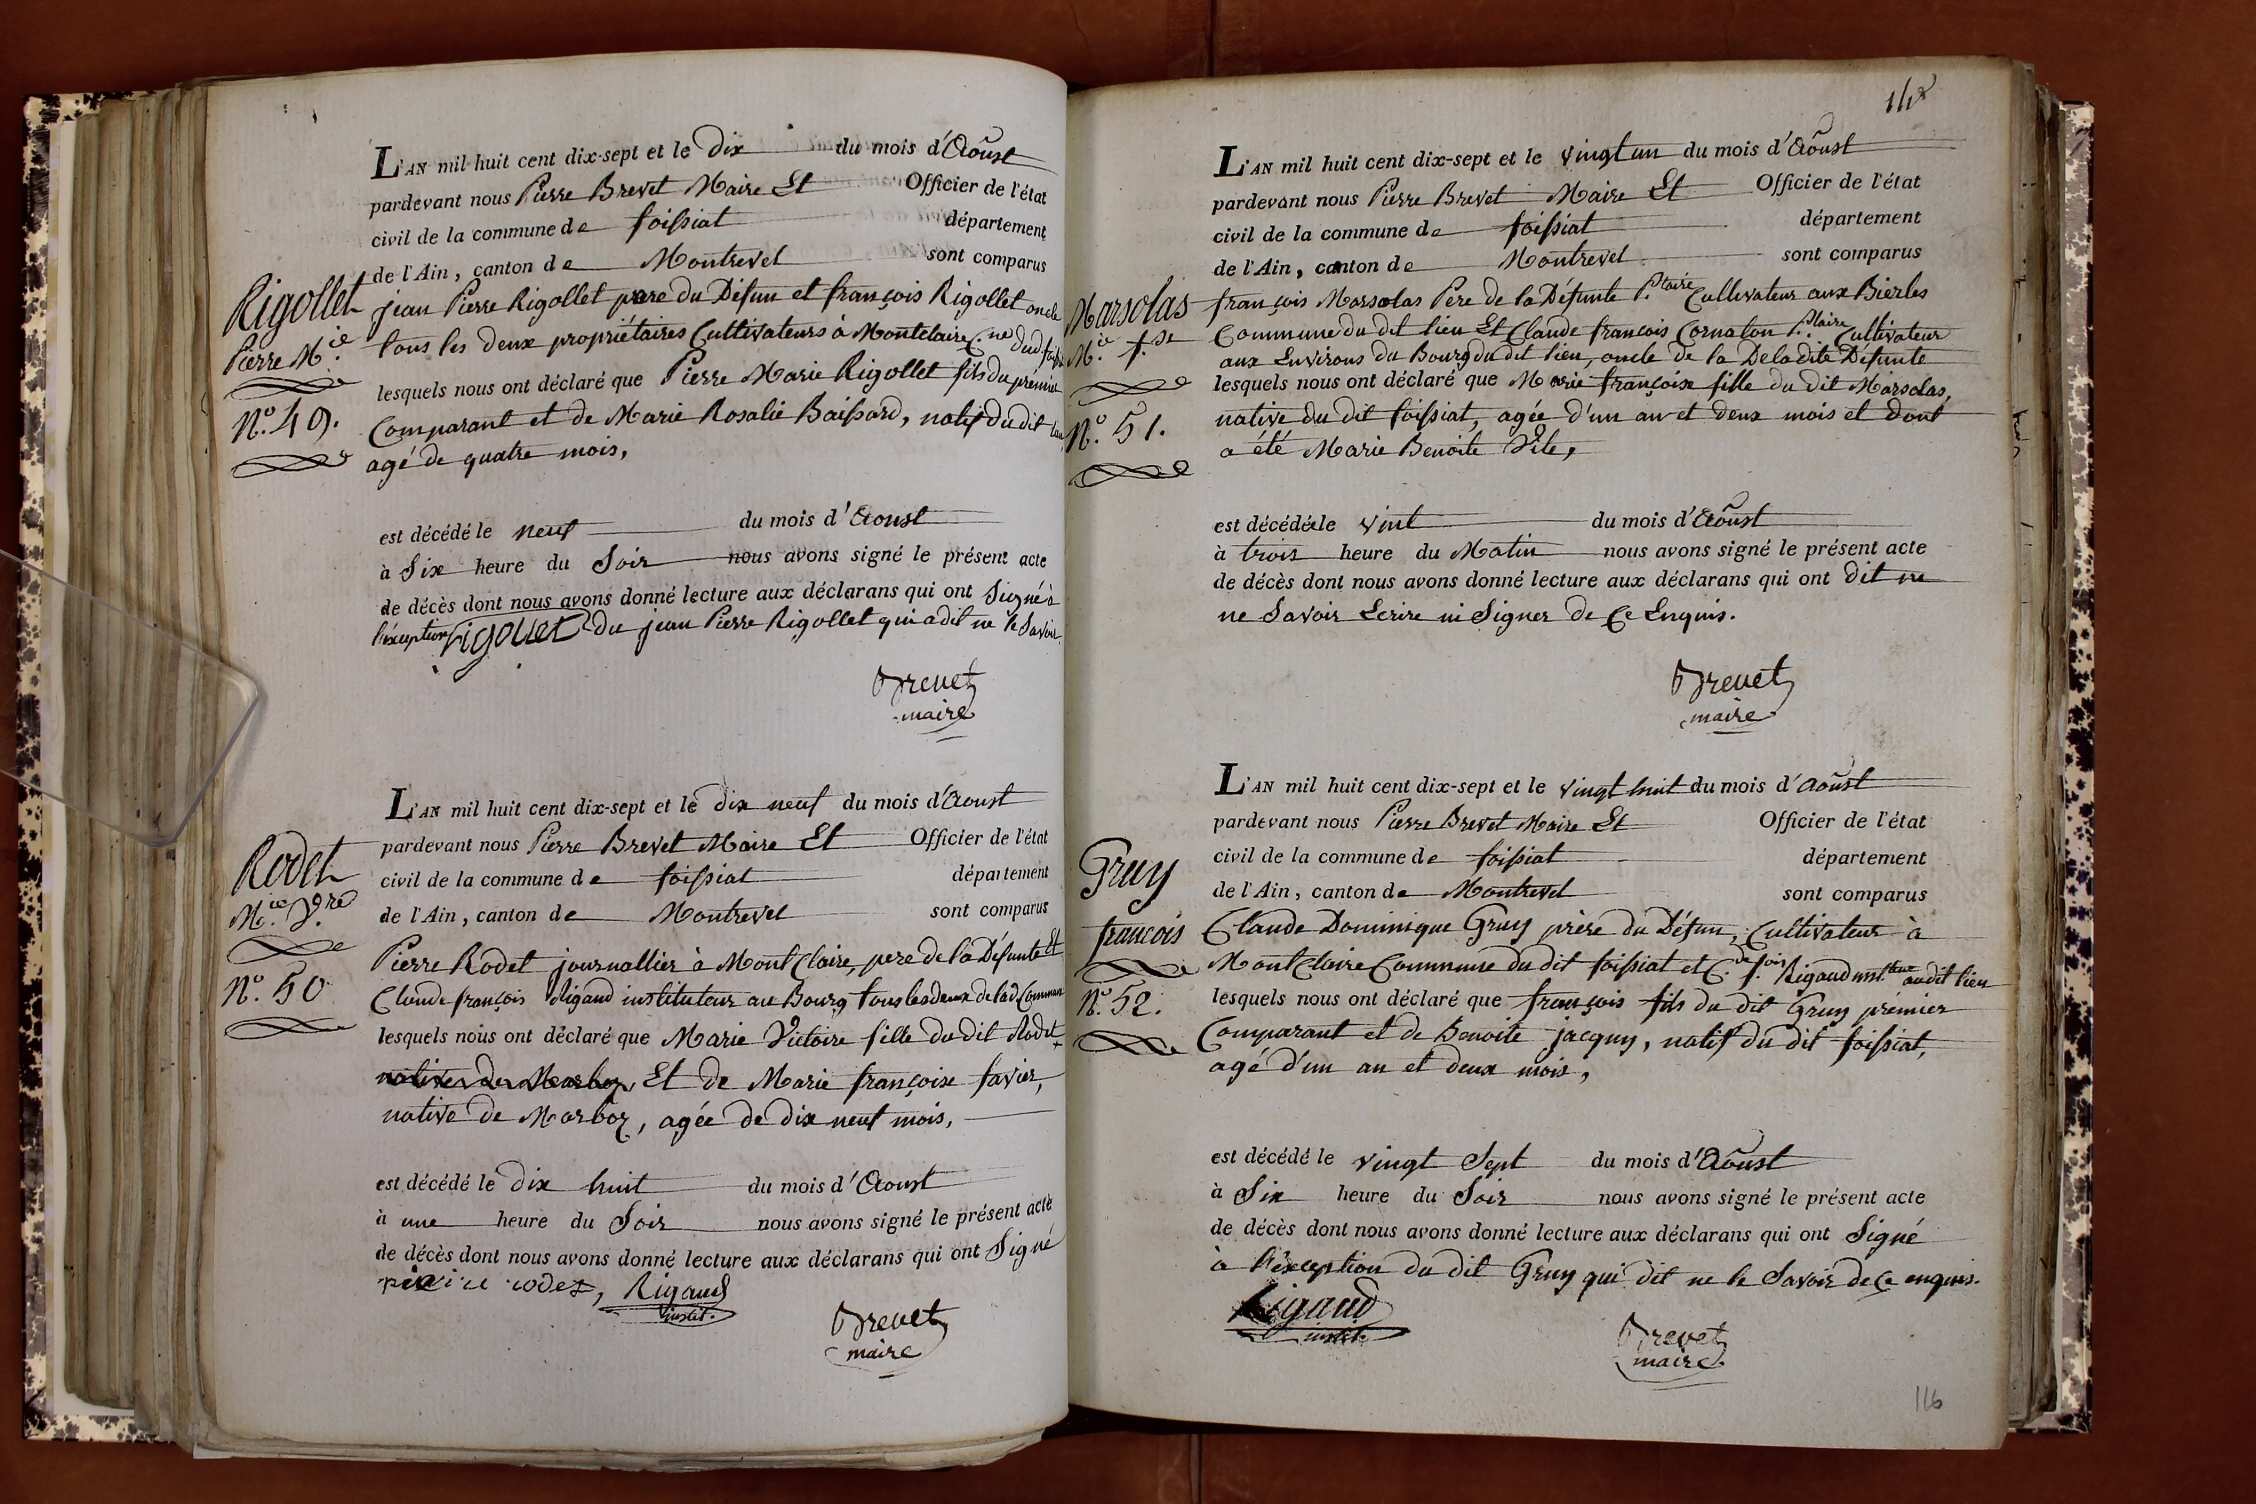 L'AN mil huit cent dix-sept et le dix du mois d'Aoûst
pardevant nous Pierre Brevet Maire Et Officier de l'état
civil de la commune de foissiat département
de l'Ain, canton de Montrevel sont comparus
Rigollet
Pierre M.ie
N.o 49.
jean Pierre Rigollet pere du Défun et françois Rigollet oncle
tous les deux propriétaires Cultivateurs à Montclaire C.ne dud
lesquels nous ont déclaré que Pierre Marie Rigollet fils du prémier
Comparant et de Marie Rosalie Baissard, natif du dit lieu
agé de quatre mois,
est décédé le neuf du mois d'Aoust
à Six heure du Soir nous avons signé le présent acte
de décès dont nous avons donné lecture aux déclarans qui ont Signé à
l'exception Rigollet du jean Pierre Rigollet qui a dit ne le Savoir
Brevet
maire
L'AN mil huit cent dix-sept et le dix neuf du mois d'Aoust
pardevant nous Pierre Brevet Maire Et Officier de l'état
civil de la commune de foissiat département
de l'Ain, canton de Montrevel sont comparus
Rodet
M.ie V.re
N.o 50
Pierre Rodet journallier à Mont Claire, pere de la Défunte Et
Claude françois Rigaud instituteur au Bourg tous les deux de lad Commune
lesquels nous ont déclaré que Marie Victoire fille du dit Rodet
native de Marboz, Et de Marie françoise favier,
native de Marboz, agée de dix neuf mois,
est décédé le dix huit du mois d'Aoust
à une heure du Soir nous avons signé le présent acte
de décès dont nous avons donné lecture aux déclarans qui ont Signé
pierre rodet, Rigaud
instit.
Brevet
maire
L'AN mil huit cent dix-sept et le vingt un du mois d'Aoûst
pardevant nous Pierre Brevet Maire Et Officier de l'état
civil de la commune de foissiat département
de l'Ain, canton de Montrevel sont comparus
Marsolas
M.ie f.se
N.o 51.
françois Marsolas Pere de la Défunte P.taire Cultivateur aux Bierles
Commune du dit lieu Et Claude françois Cornaton P.taire Cultivateur
aux Environs du Bourg du dit lieu, oncle de la De la dite Défunte
lesquels nous ont déclaré que Marie françoise fille du dit Marsolas,
native du dit foissiat, agée d'un an et deux mois et dont
a été Marie Benoite Vite,
est décédée le vint du mois d'Aoûst
à trois heure du Matin nous avons signé le présent acte
de décès dont nous avons donné lecture aux déclarans qui ont dit ne
ne Savoir Ecrire ni Signer de Ce Enquis.
Brevet
maire
L'AN mil huit cent dix-sept et le vingt huit du mois d'Aoûst
pardevant nous Pierre Brevet Maire Et Officier de l'état
civil de la commune de foissiat département
de l'Ain, canton de Montrevel sont comparus
Gruy
francois
N.o 52.
Claude Dominique Gruy père du Défun, Cultivateur à
Mont Claire Commune du dit foissiat et C.de f.ois Rigaud inst.teur audit lieu
lesquels nous ont déclaré que françois fils du dit Gruy prémier
Comparant et de Benoite jacquy, natif du dit foissiat,
agé d'un an et deux mois,
est décédé le vingt Sept du mois d'Aoûst
à Six heure du Soir nous avons signé le présent acte
de décès dont nous avons donné lecture aux déclarans qui ont Signé
à l'exception du dit Gruy qui dit ne le Savoir de Ce enquis.
Rigaud
instit.
Brevet
maire
116